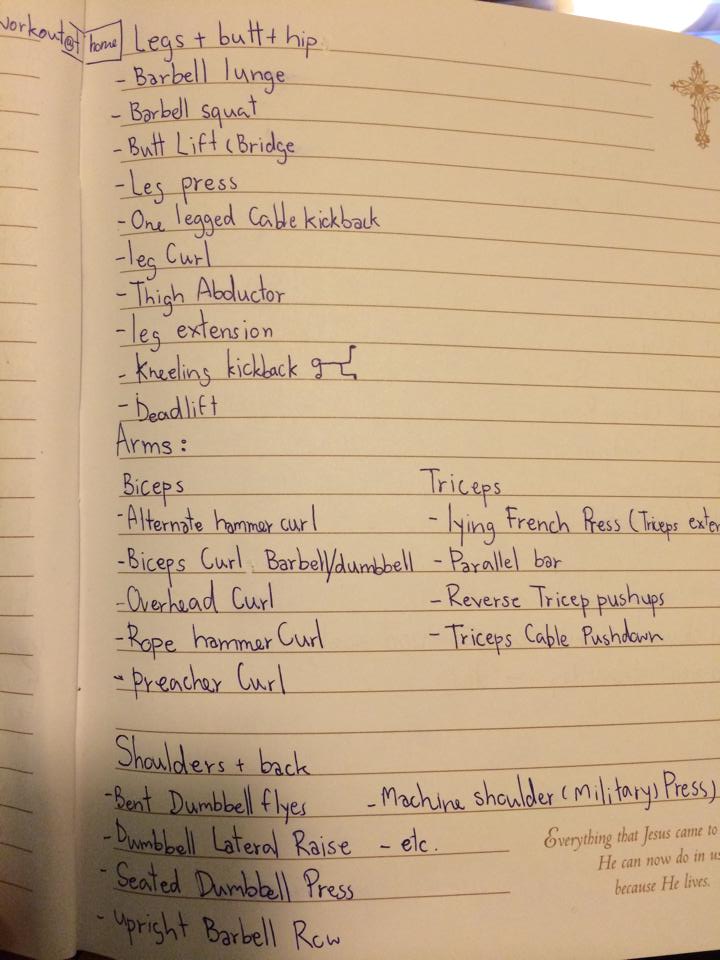 workout@ home Legs + butt + hip
- Barbell lunge
- Barbell squat
- Butt Lift (Bridge
- Leg press
- One legged Cable kickback
- leg Curl
- Thigh Abductor
- leg extension
- Kneeling kickback
- Deadlift
Arms :
Biceps
- Alternate hammer curl
- Biceps Curl Barbell/dumbbell
- Overhead Curl
- Rope hammer Curl
- preacher Curl
Triceps
- lying French Press (Triceps exten
- Parallel bar
- Reverse Tricep pushups
- Triceps Cable Pushdown
Shoulders + back
- Bent Dumbbell flyes
- Dumbbell Lateral Raise
- Seated Dumbbell Press
- Upright Barbell Row
- Machine shoulder (Military) Press)
- etc.
Everything that Jesus came to
He can now do in us
because He lives.